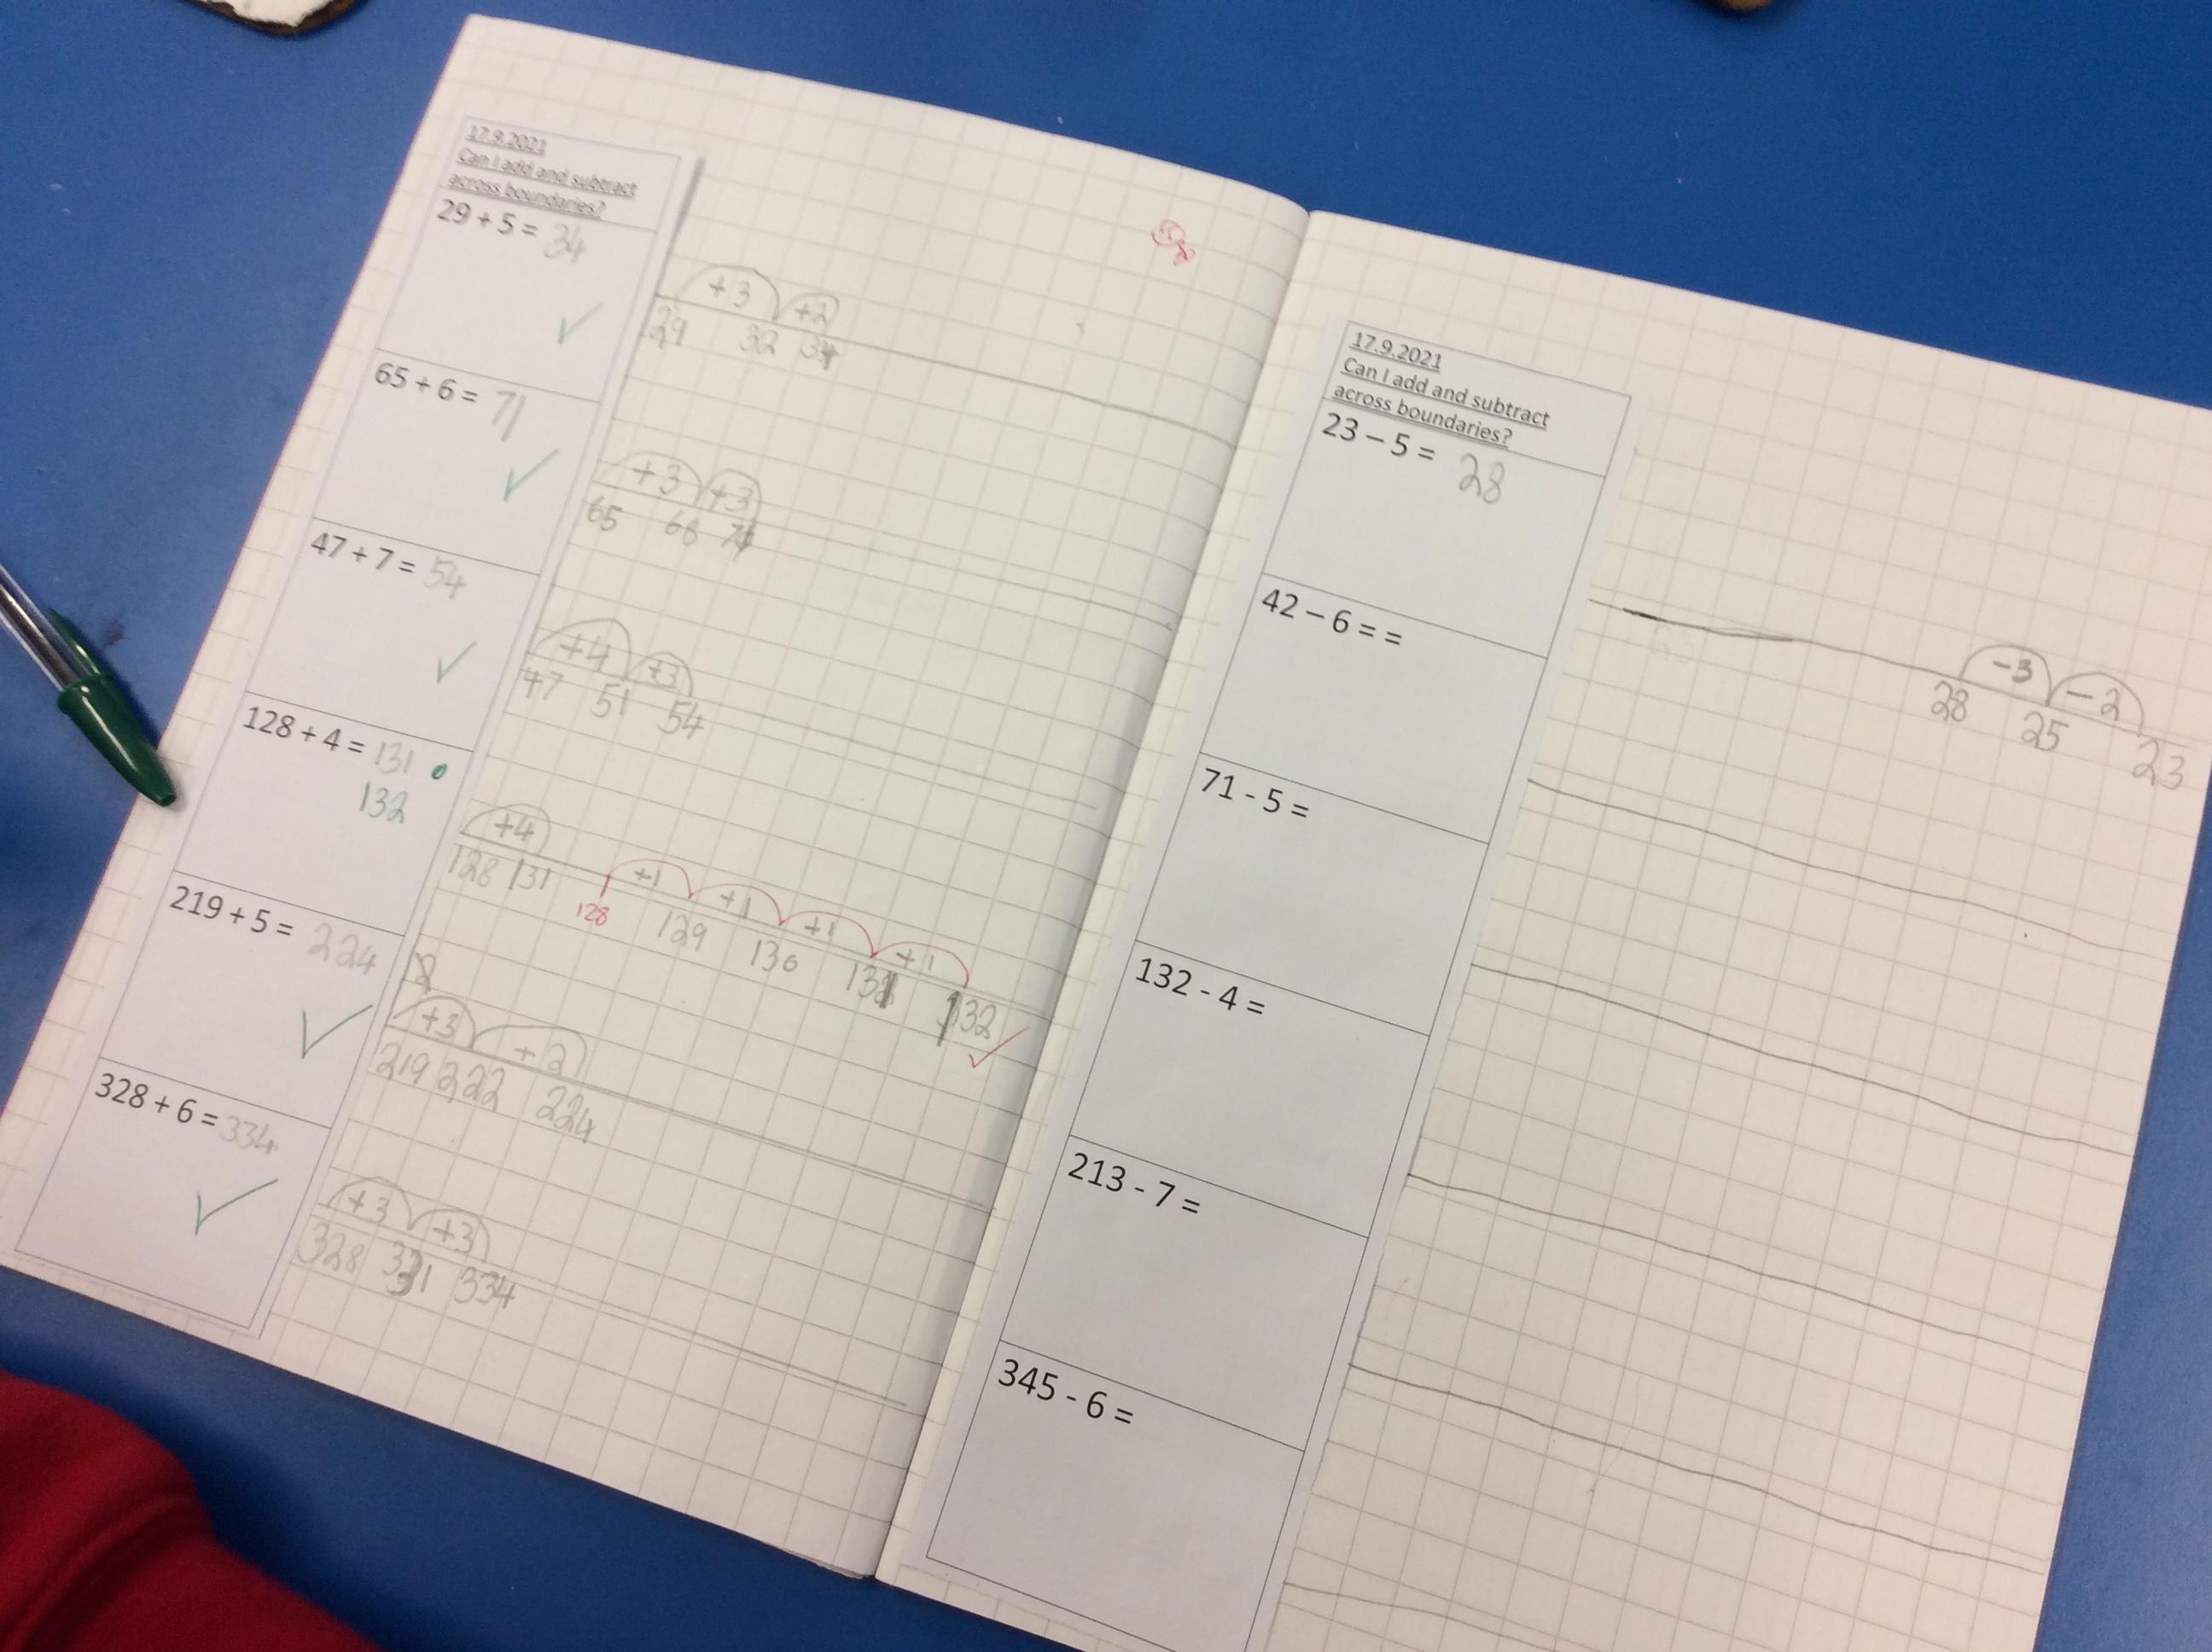 17.9.2021
Can I add and subtract
across boundaries?
29 + 5 = 34
+3 +2
29 32 34
65 + 6 = 71
+3 +3
65 68 71
47 + 7 = 54
+4 +3
47 51 54
128 + 4 = 131
132
+4
128 131
+1 +1 +1 +1
128 129 130 131 132
219 + 5 = 224
+3 +2
219 222 224
328 + 6 = 334
+3 +3
328 331 334
17.9.2021
Can I add and subtract
across boundaries?
23 – 5 = 28
-3 -2
28 25 23
42 – 6 = =
71 - 5 =
132 - 4 =
213 - 7 =
345 - 6 =